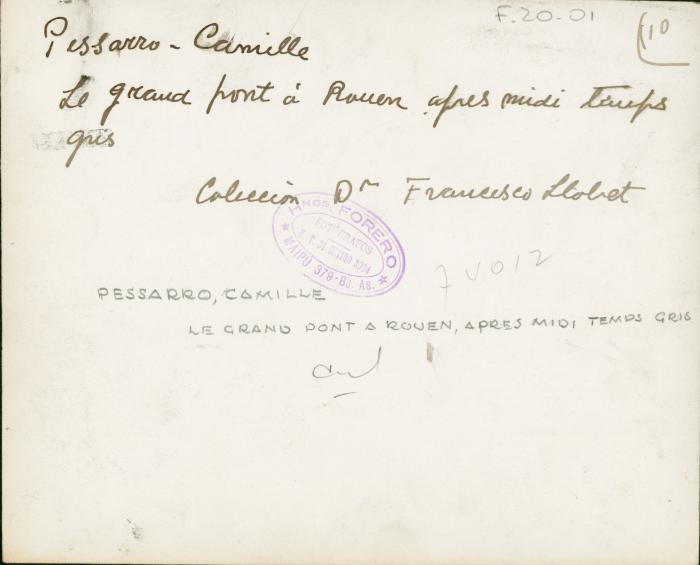 F.20-01
110
Pessarro - Camille
Le grand pont à Rouen apres midi temps
gris
Coleccion Dr Francesco Llobet
HNOS. FORERO
FOTÓGRAFOS
MAIPÚ 379 - Bs. As.
7V012
PESSARRO, CAMILLE
LE GRAND PONT A ROUEN, APRES MIDI TEMPS GRIS